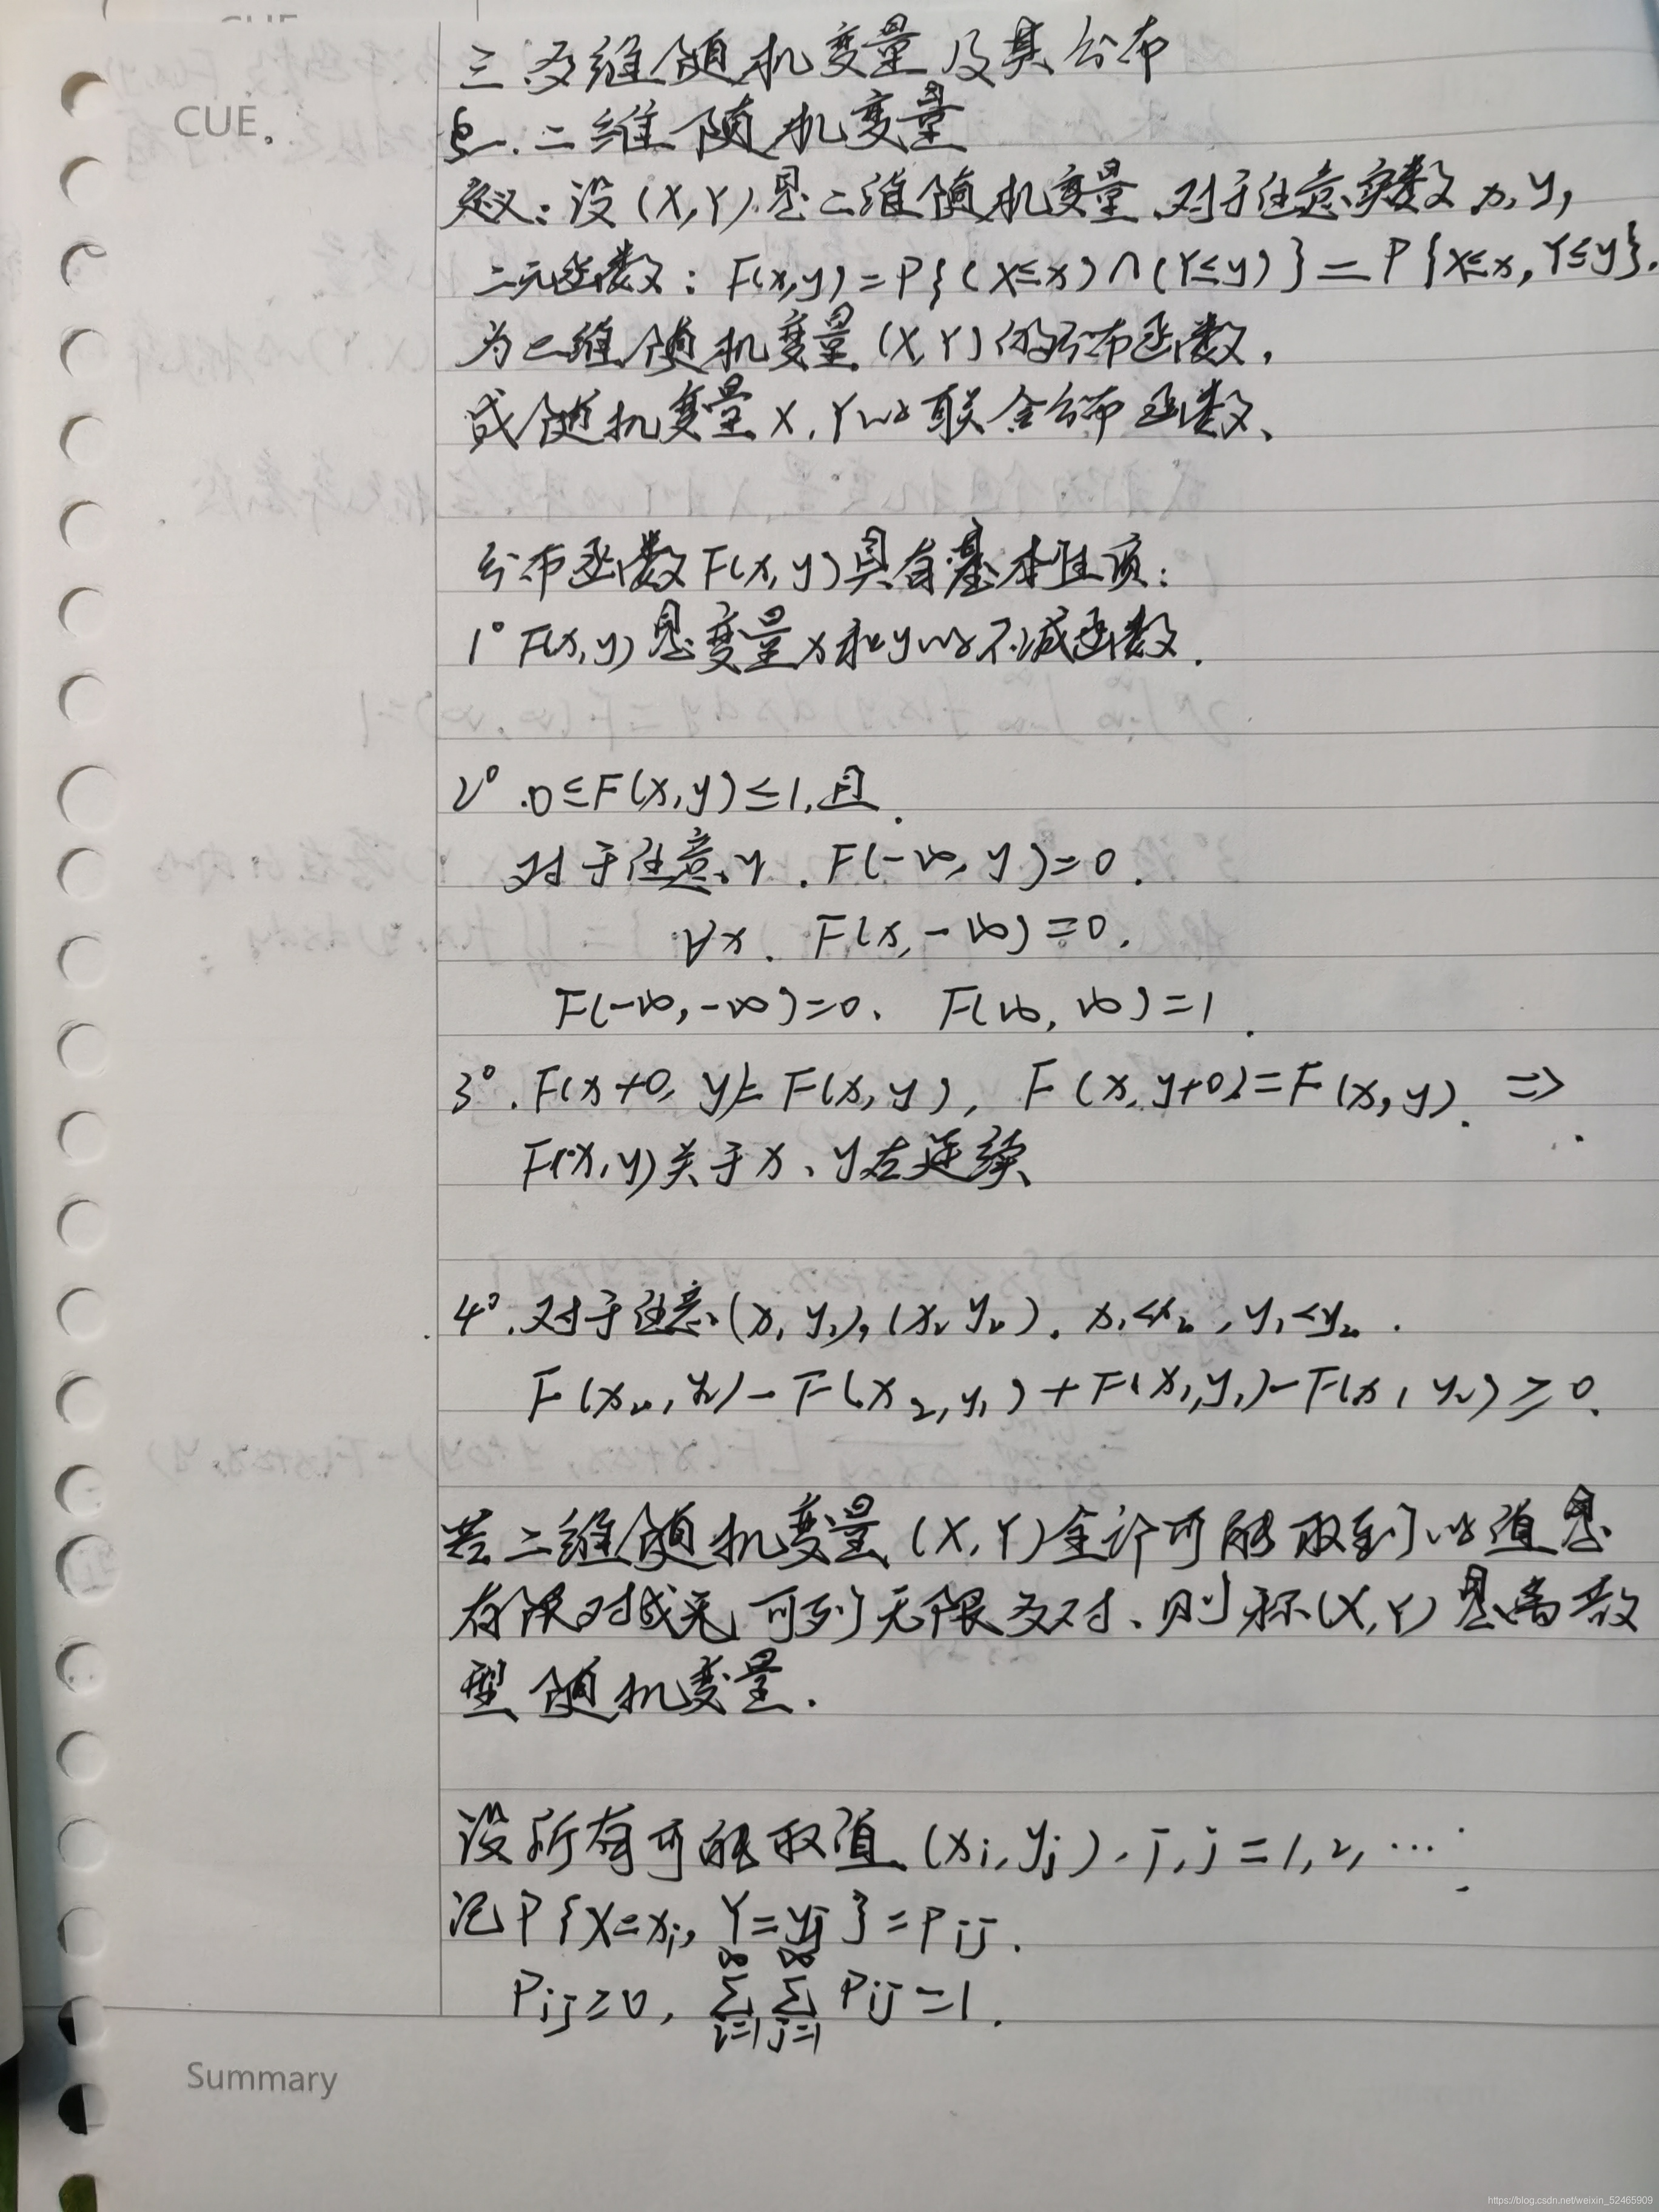 CUE.
三.多维随机变量及其分布
§一.二维随机变量
定义:设(X,Y)是二维随机变量.对于任意实数x,y,
二元函数: F(x,y)=P{(X≤x)∩(Y≤y)}=P{X≤x, Y≤y}.
为二维随机变量(X,Y)的分布函数,
或随机变量X,Y的联合分布函数、
分布函数F(x,y)具有基本性质:
1° F(x,y)是变量x和y的不减函数.
2° .0≤F(x,y)≤1,且.
对于任意y. F(-∞, y)=0.
∀x. F(x,-∞)=0.
F(-∞,-∞)=0. F(∞,∞)=1.
3°.F(x+0, y)=F(x,y), F(x,y+0)=F(x,y). ⇒
F(x,y)关于x、y右连续
4°.对于任意(x₁,y₁),(x₂,y₂). x₁<x₂,y₁<y₂.
F(x₂,y₂)-F(x₂,y₁)+F(x₁,y₁)-F(x₁,y₂)≥0.
若二维随机变量(X,Y)全部可能取到的值是
有限对或无可列无限多对、则称(X,Y)是离散
型随机变量.
设所有可能取值(xᵢ,yⱼ),i,j=1,2,⋯
记P{X=xᵢ, Y=yⱼ}=Pᵢⱼ.
Pᵢⱼ≥0, ∞∑i=1 ∞∑j=1 Pᵢⱼ=1.
Summary
https://blog.csdn.net/weixin_52465909